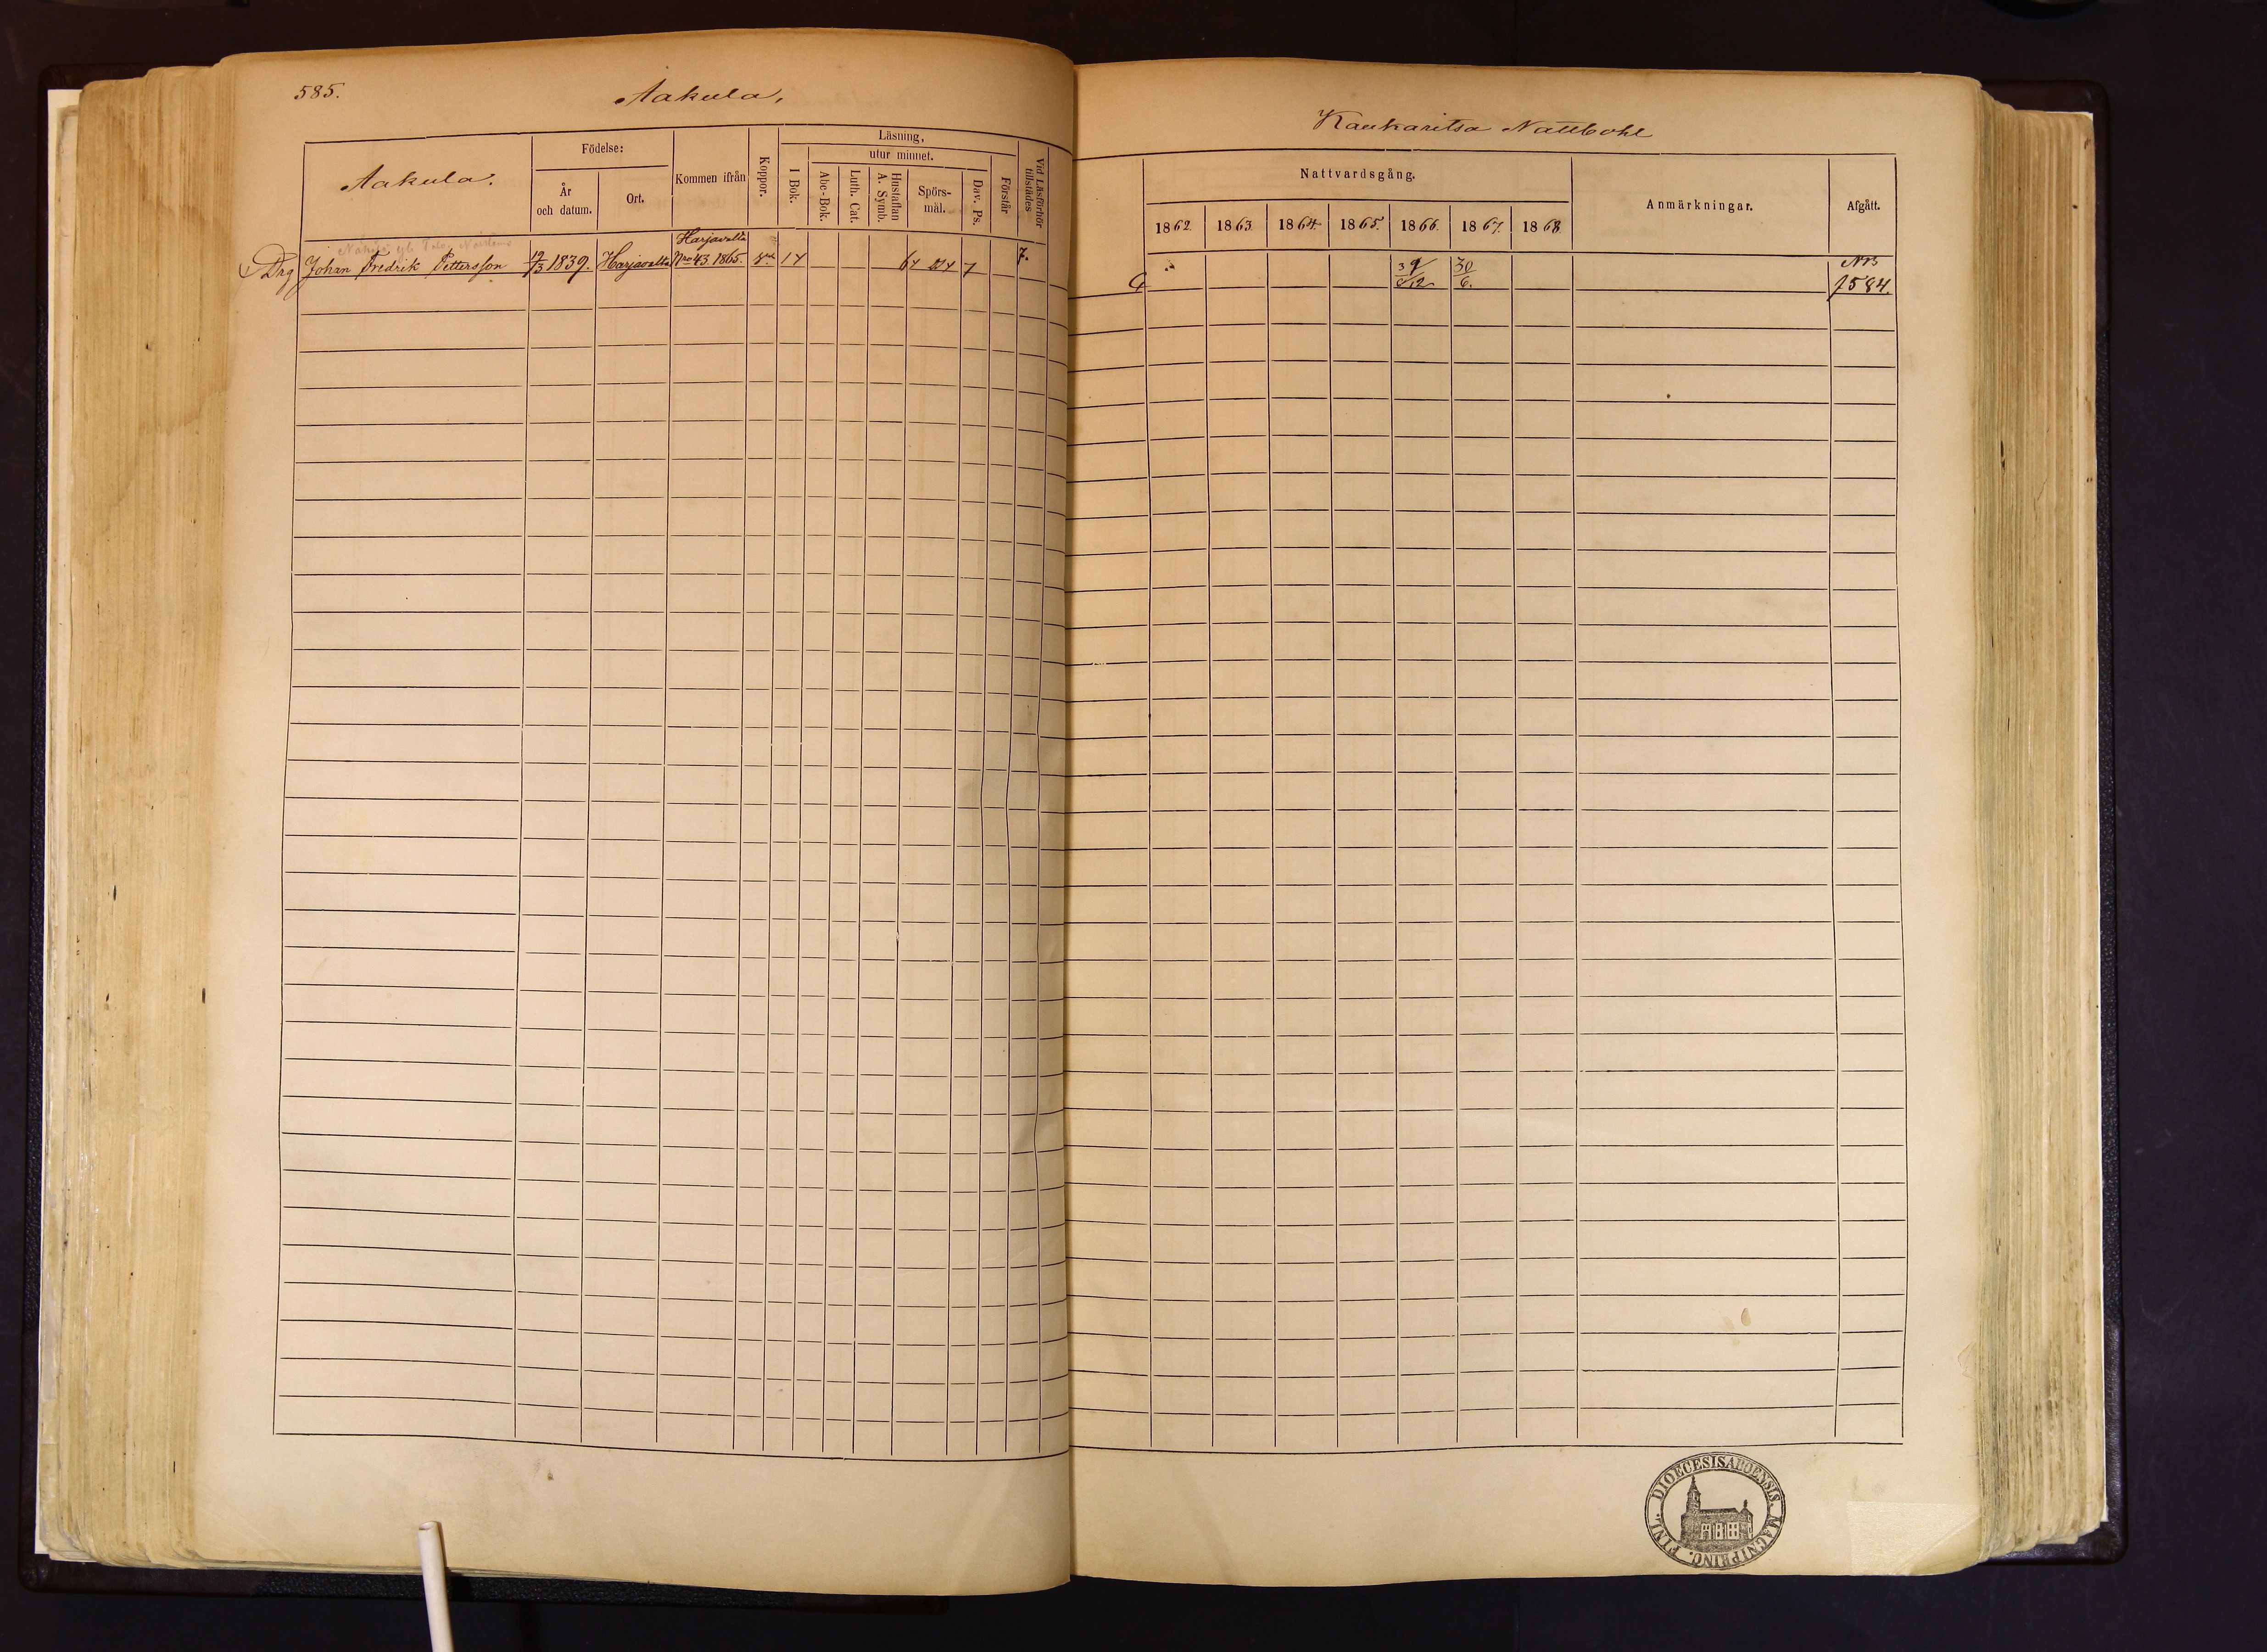 585.
Aakula,
Kaukaritsa Nattbohl
Aakula.
Födelse:
År
och datum.
Ort.
Kommen ifrån
Koppor.
Läsning,
I Bok.
utur minnet.
Abc-Bok.
Luth. Cat.
Hustaflan
A. Symb.
Spörs-
mål.
Dav. Ps.
Förstår
Vid Läsförhör
tillstädes
Nattvardsgång.
1862. 1863. 1864. 1865. 1866. 1867. 1868.
Anmärkningar.
Afgått.
Drg Johan Fredrik Pettersson 12/3 1839. Harjavalta
Harjavalta
Nro 43. 1865.
7.
30
6.
584.
DIOECESIS ABOENSIS. MAGNI PRINC. FINL.